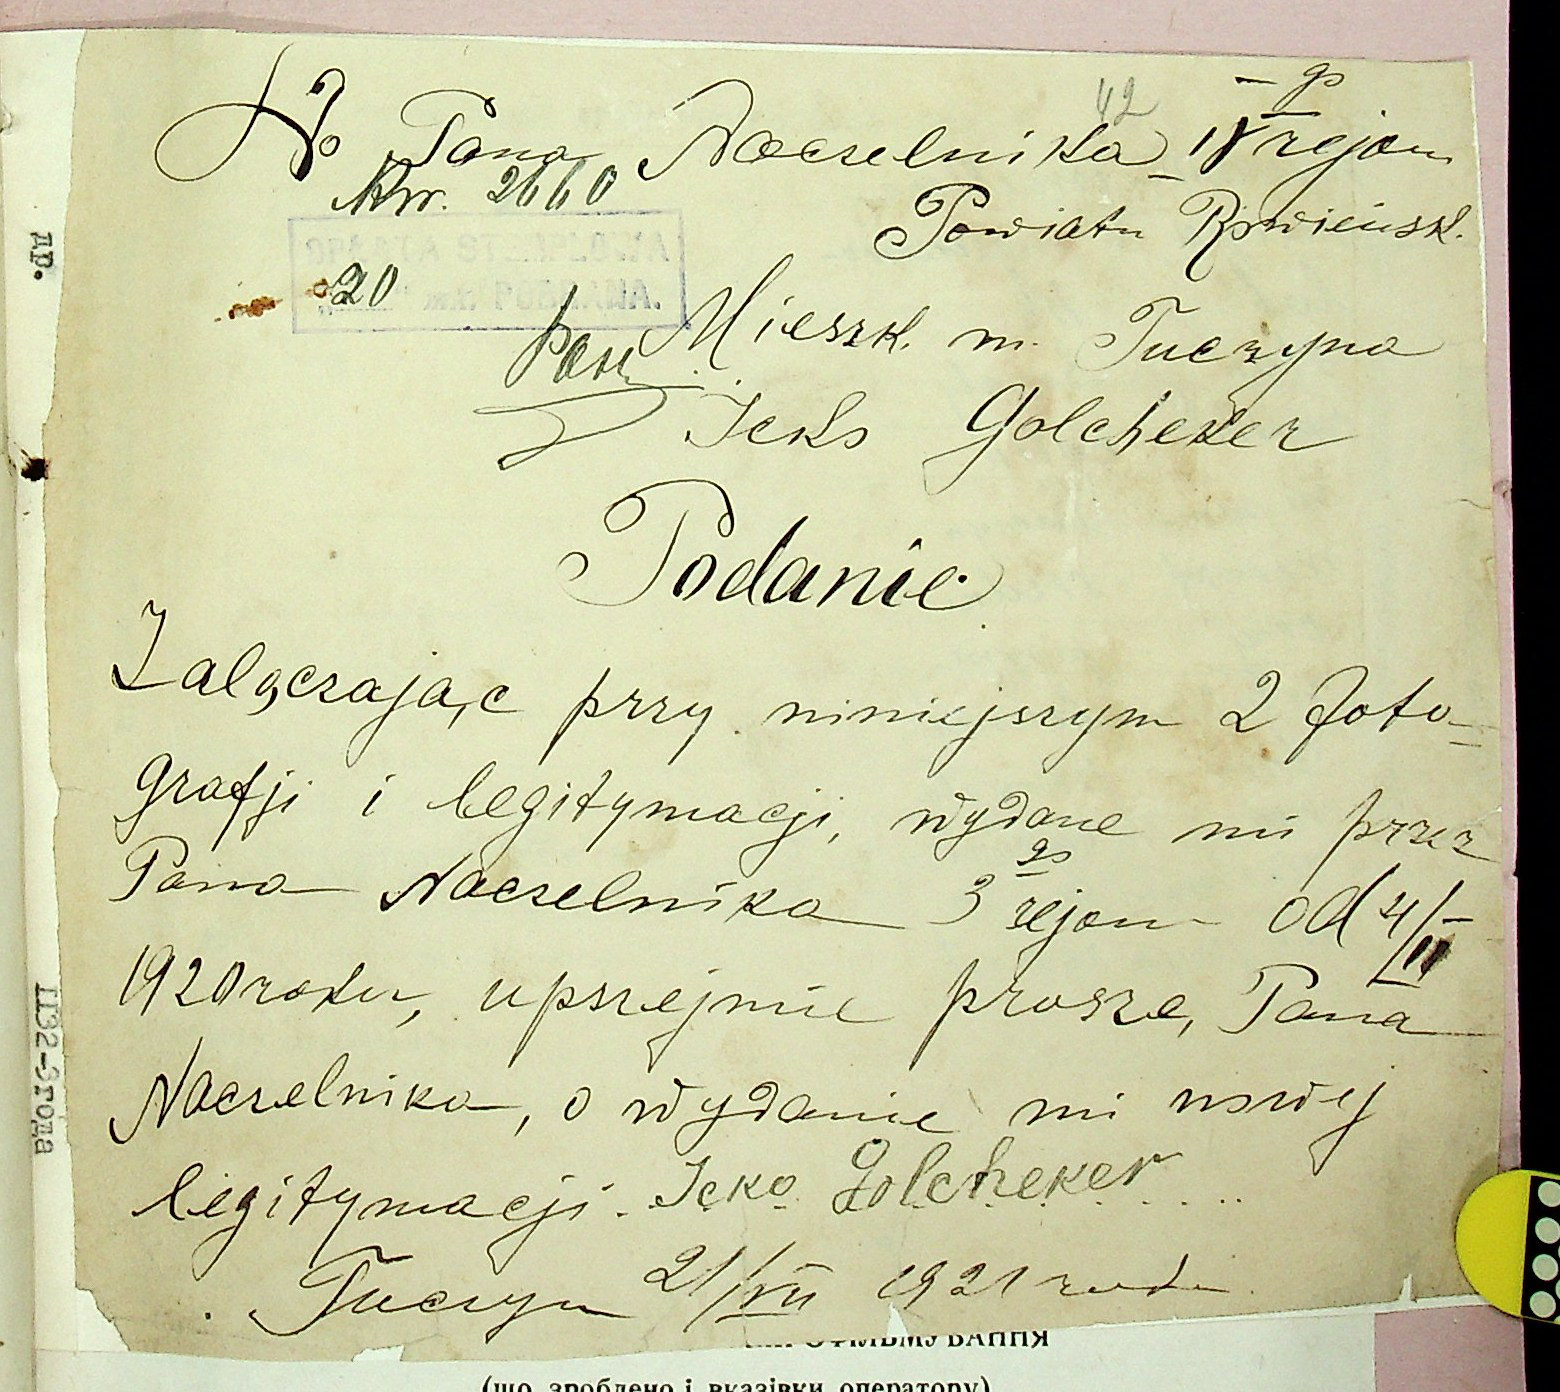 42
Do Pana Naczelnika IV go rejonu
Nr. 2660
Powiatu Rowieńsk.
OPŁATA STEMPLOWA
20 mk. POBRANA.
Mieszk. m. Tuczyna
Icko Golcheker
Podanie
Zalączając przy niniejszym 2 foto-
grafji i legitymacji, wydane mi przez
Pana Naczelnika 3 go rejonu od 4/II
1920 roku, upszejmie prosze, Pana
Naczelnika, o wydanie mi nowej
legitymacji. Icko Golcheker
Tuczyn 21/VII 1921 roku
др.
1132-3года
ОФІЛЬМУВАННЯ
(що зроблено і вказівки оператору)